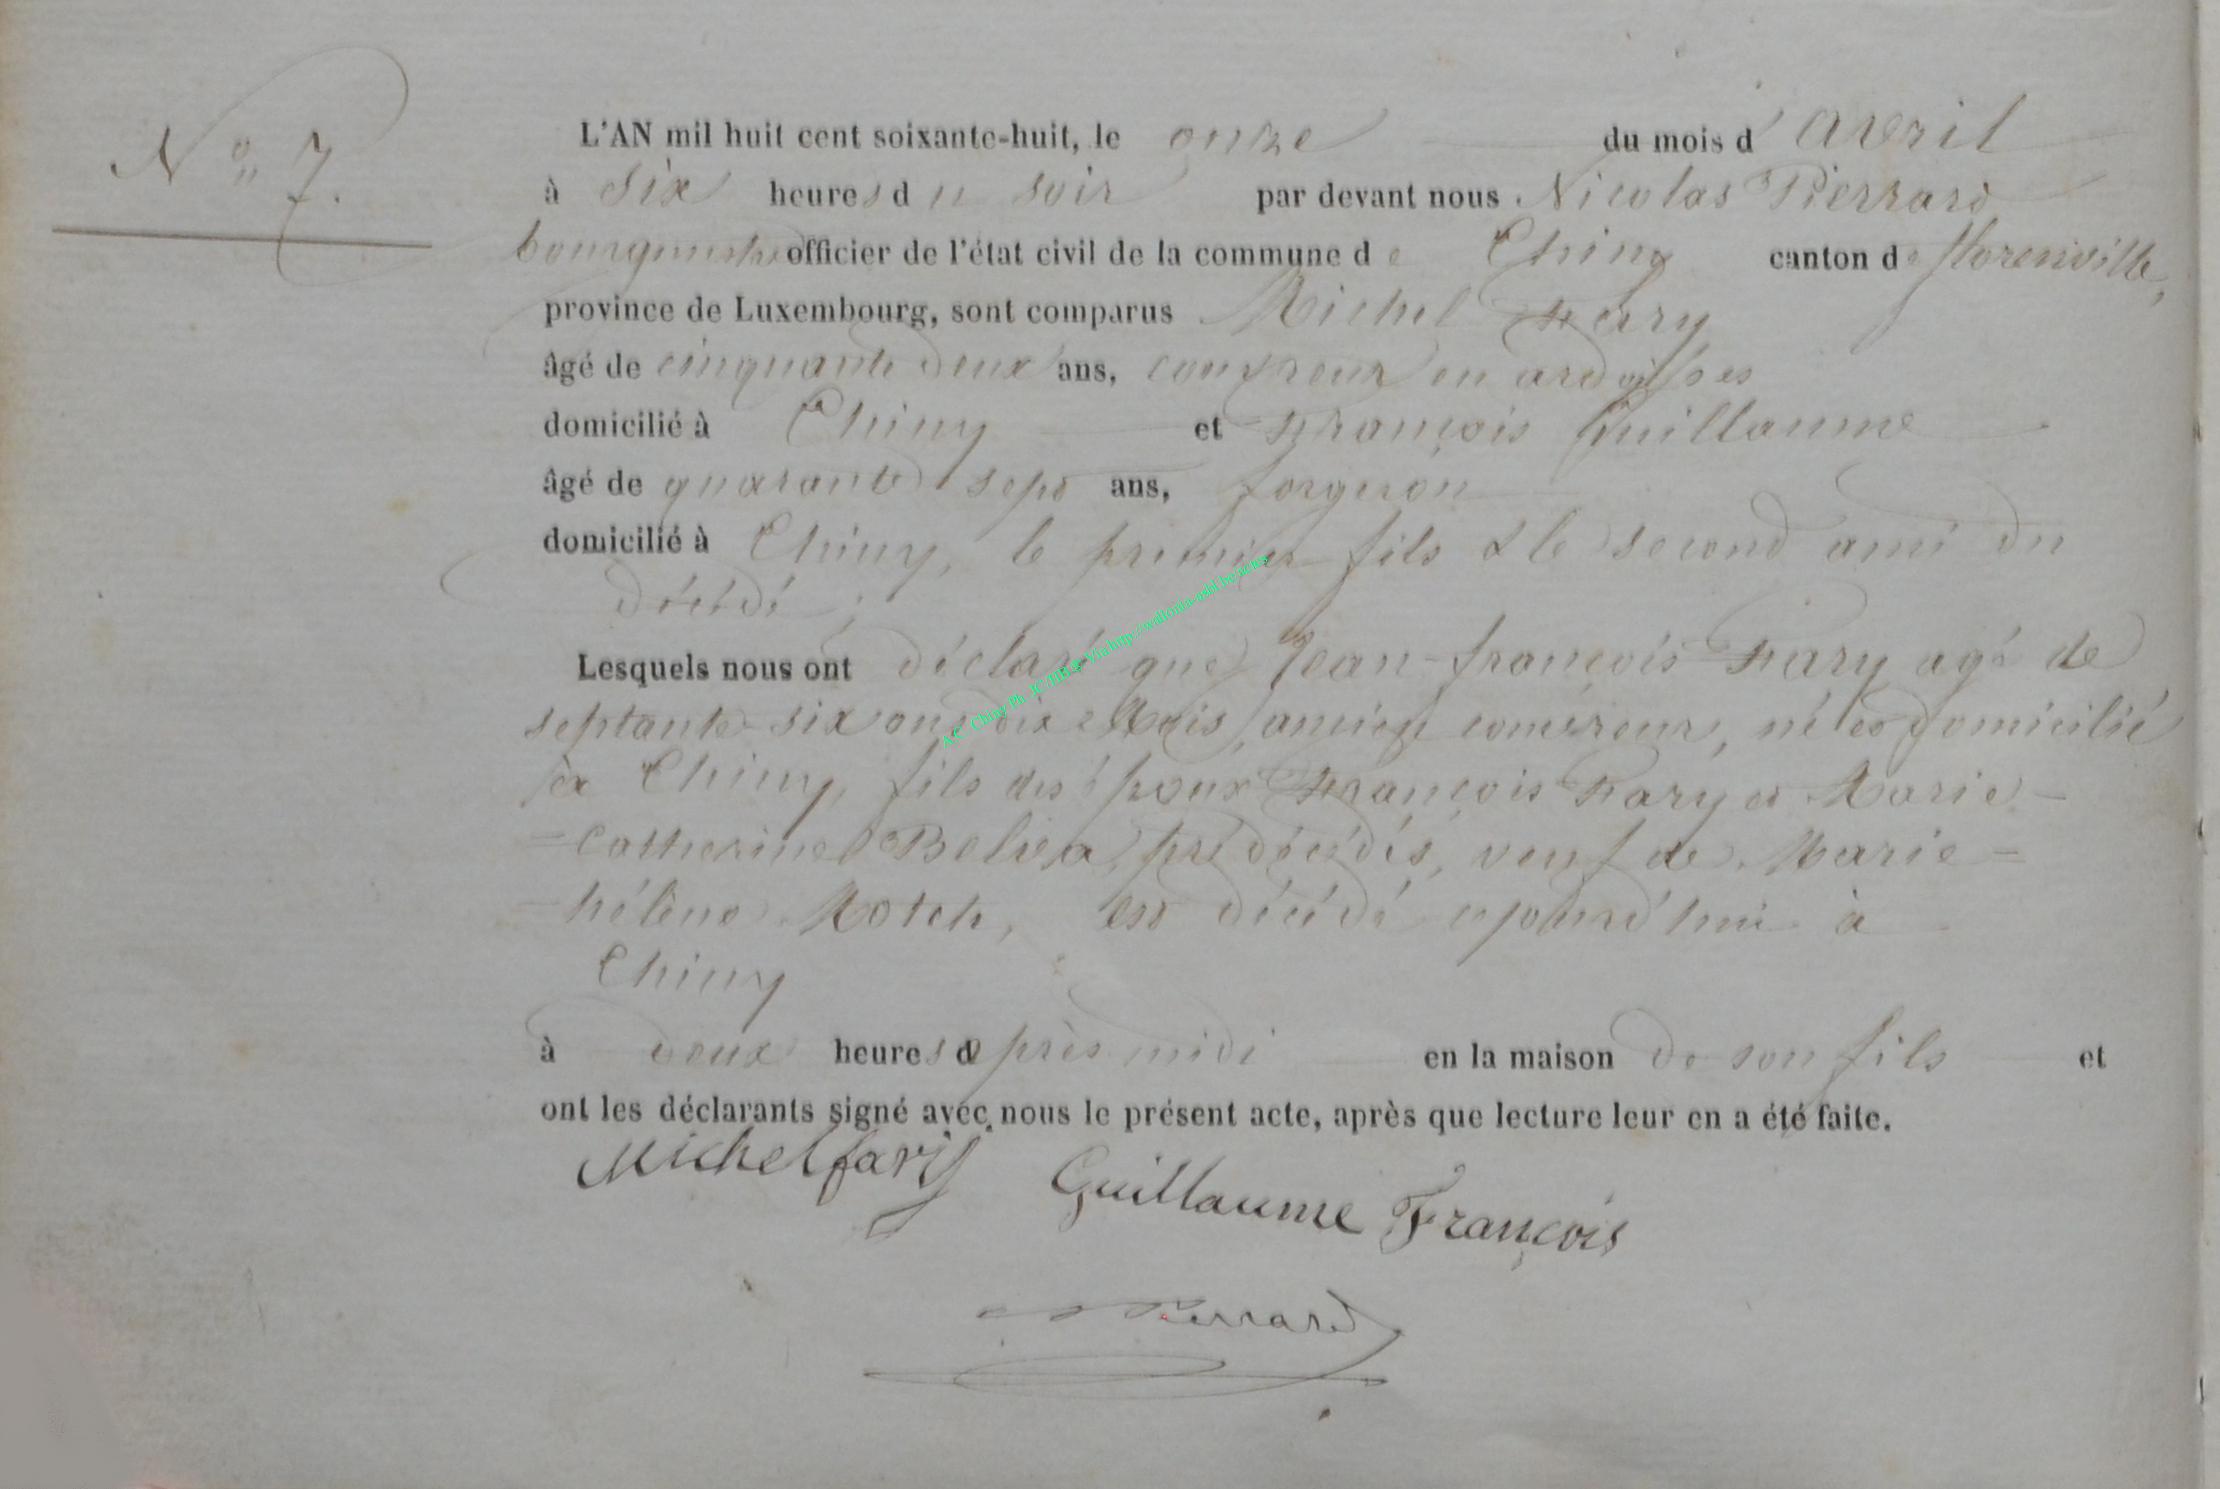 N° 7.
L'AN mil huit cent soixante-huit, le onze du mois d'avril
à six heures du soir par devant nous Nicolas Pierrard
bourgmestre officier de l'état civil de la commune de Chiny canton de florenville,
province de Luxembourg, sont comparus Michel Fary
âgé de cinquante deux ans, couvreur en ardoises
domicilié à Chiny et François Guillaume
âgé de quarante sept ans, forgeron
domicilié à Chiny, le premier fils & le second ami du
décédé;
Lesquels nous ont déclaré que Jean-françois Fary agé de
septante-six ans dix Mois, ancien couvreur, né et domicilié
à Chiny, fils des époux François Fary et Marie-
-Catherine Belva, prédécédés, veuf de Marie-
-hélène Motch, est décédé aujourd'hui à
Chiny
à deux heures après midi en la maison de son fils et
ont les déclarants signé avec nous le présent acte, après que lecture leur en a été faite.
Michel fary Guillaume François
Pierrard